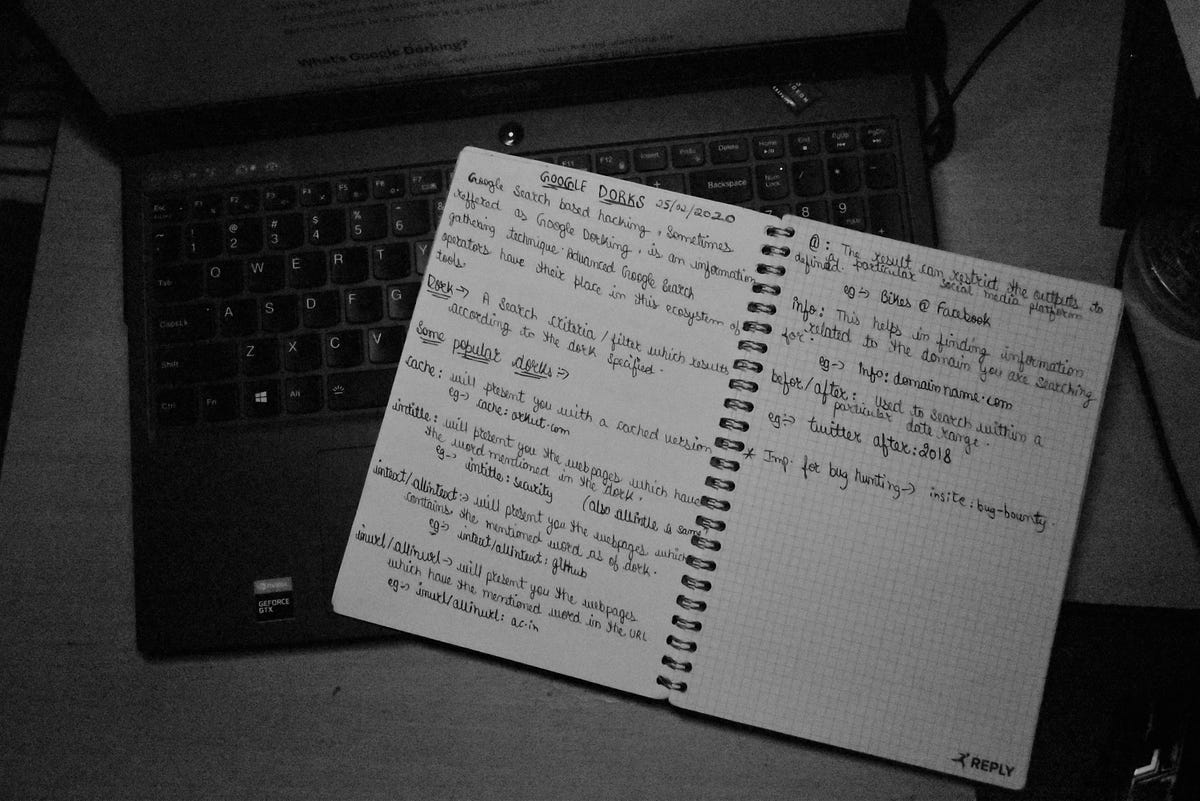 What's Google Dorking?
GOOGLE DORKS 25/02/2020
Google Search based hacking, Sometimes
reffered as Google Dorking, is an information
gathering technique. Advanced Google Search
operators have their place in this ecosystem of
tools.
Dork → A search criteria / filter which results
according to the dork specified.
Some popular dorks ⇒
cache: will present you with a cached version
eg → cache: orkut.com
intitle: will present you the webpages which have
the word mentioned in the dork.
eg → intitle: security (also allintle is same)
intext/allintext: → will present you the webpages which
contains the mentioned word as of dork.
eg → intext/allintext: github
inurl/allinurl → will present you the webpages
which have the mentioned word in the URL
eg → inurl/allinurl: ac.in
@: The result can restrict the outputs to
a particular social media platform
defined.
eg → Bikes @ Facebook
info: This helps in finding information
related to the domain you are searching
for.
eg → Info: domainname.com
befor/after: Used to search within a
particular date range.
eg → twitter after:2018
* Imp. for bug hunting → insite: bug-bounty.
REPLY
Esc
F1
F2
F3
F4
F5
F6
F7
F11
F12
Insert
Delete
Home
End
PgUp
PgDn
~ ` ! 1 @ 2 # 3 $ 4 % 5 ^ 6 &
+
Backspace
Num Lock
/ * -
Tab Q W E R T Y
7 8 9 +
CapsLk A S D F G
Shift Z X C V
Ctrl Fn Alt
GEFORCE
GTX